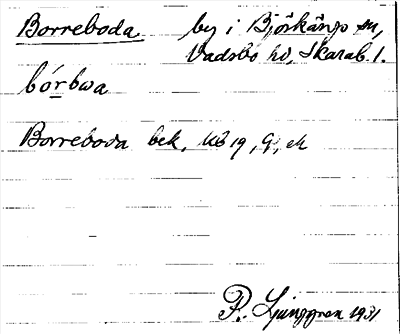 Borreboda by i Björkäng sn,
Vadsbo hd, Skarab. l.
bórbwa
Borreboda bek.
R. Ljunggren 1931